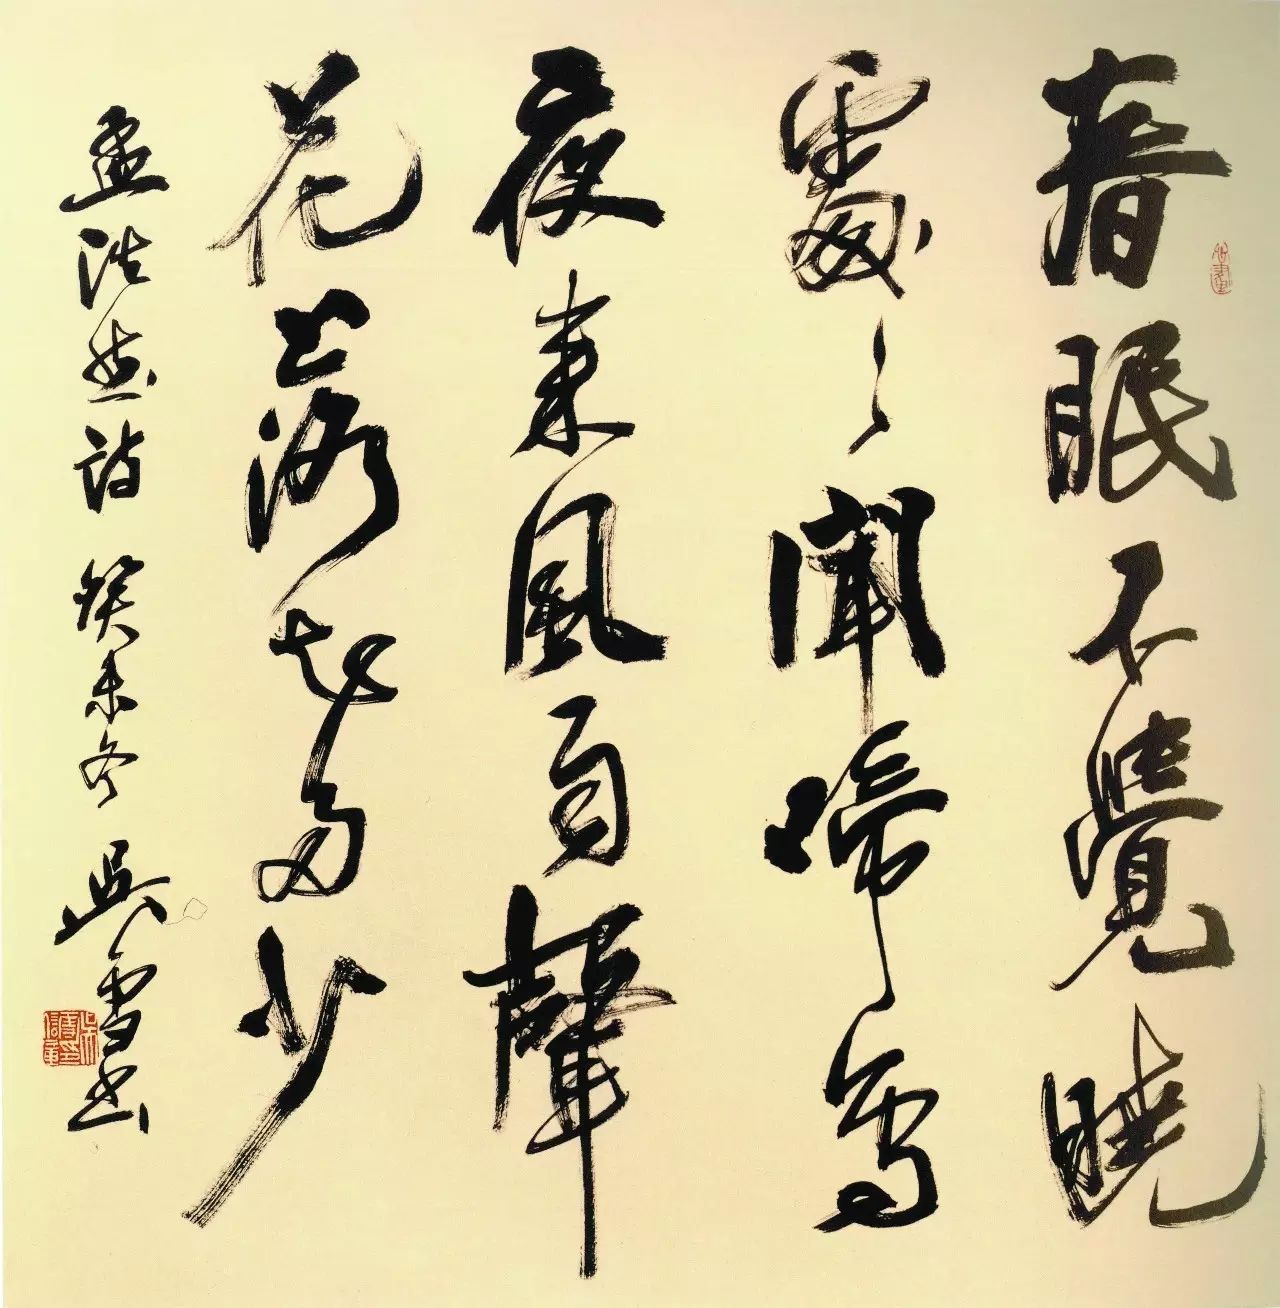 春眠不覺曉
處〻聞啼鳥
夜来風雨聲
花落知多少
孟浩然詩 癸未冬 吳雪书